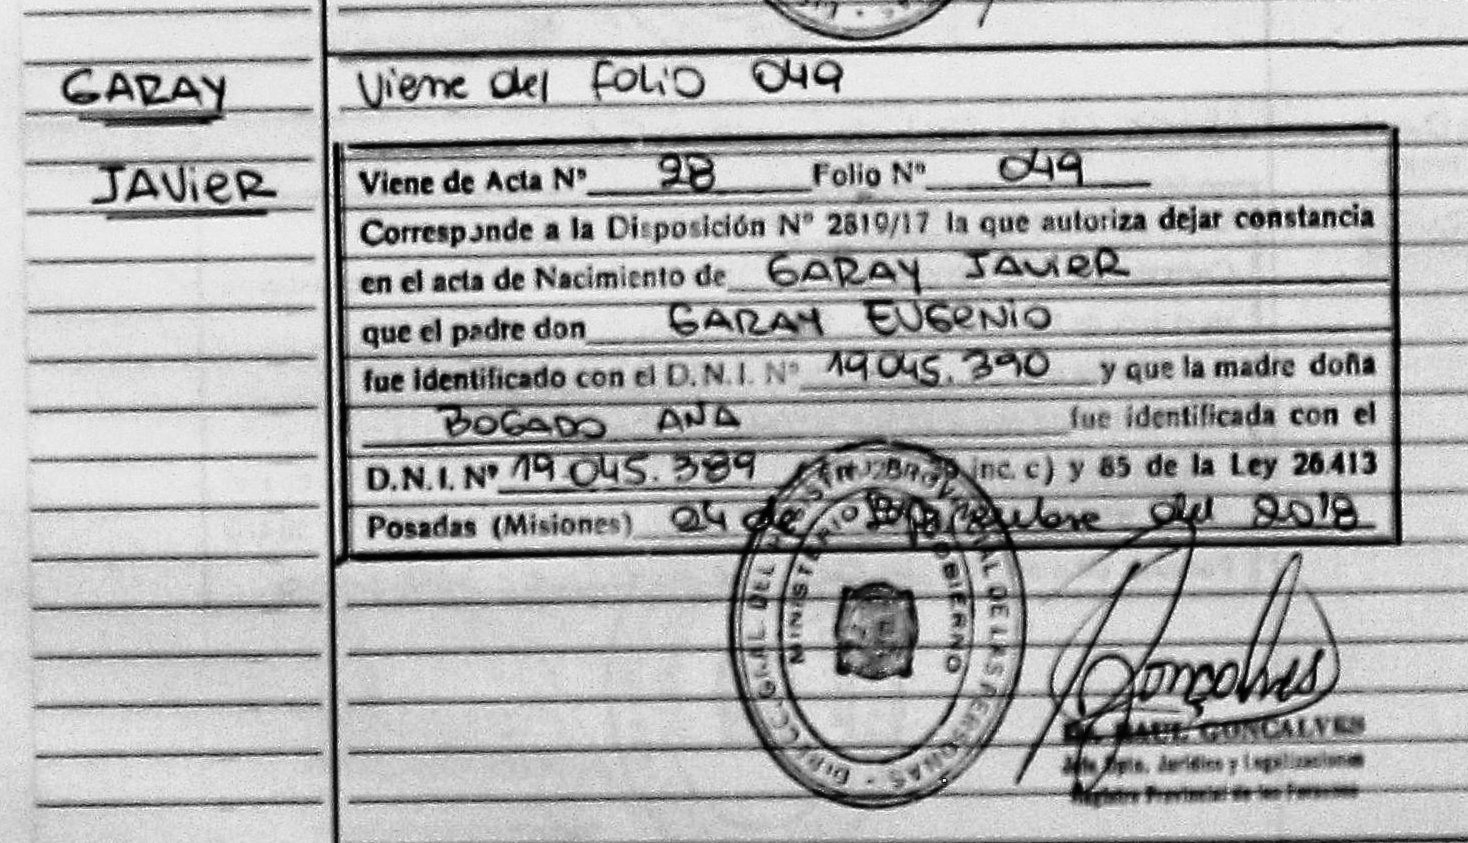 GARAY
JAVIER
Viene del FOLIO 049
Viene de Acta Nº 98 Folio Nº 049
Corresponde a la Disposición Nº 2819/17 la que autoriza dejar constancia
en el acta de Nacimiento de GARAY JAVIER
que el padre don GARAY EUGENIO
fue identificado con el D.N.I. Nº 19.045.390 y que la madre doña
BOGADO ANA fue identificada con el
D.N.I. Nº 19.045.389 inc. c) y 85 de la Ley 26.413
Posadas (Misiones) 24 de Septiembre del 2018
MINISTERIO GOBIERNO
PROVINCIAL DE LAS PERSONAS
Gonçalves
RAUL GONCALVES
Jefe Dpto. Jurídico y Legalizaciones
Registro Provincial de las Personas